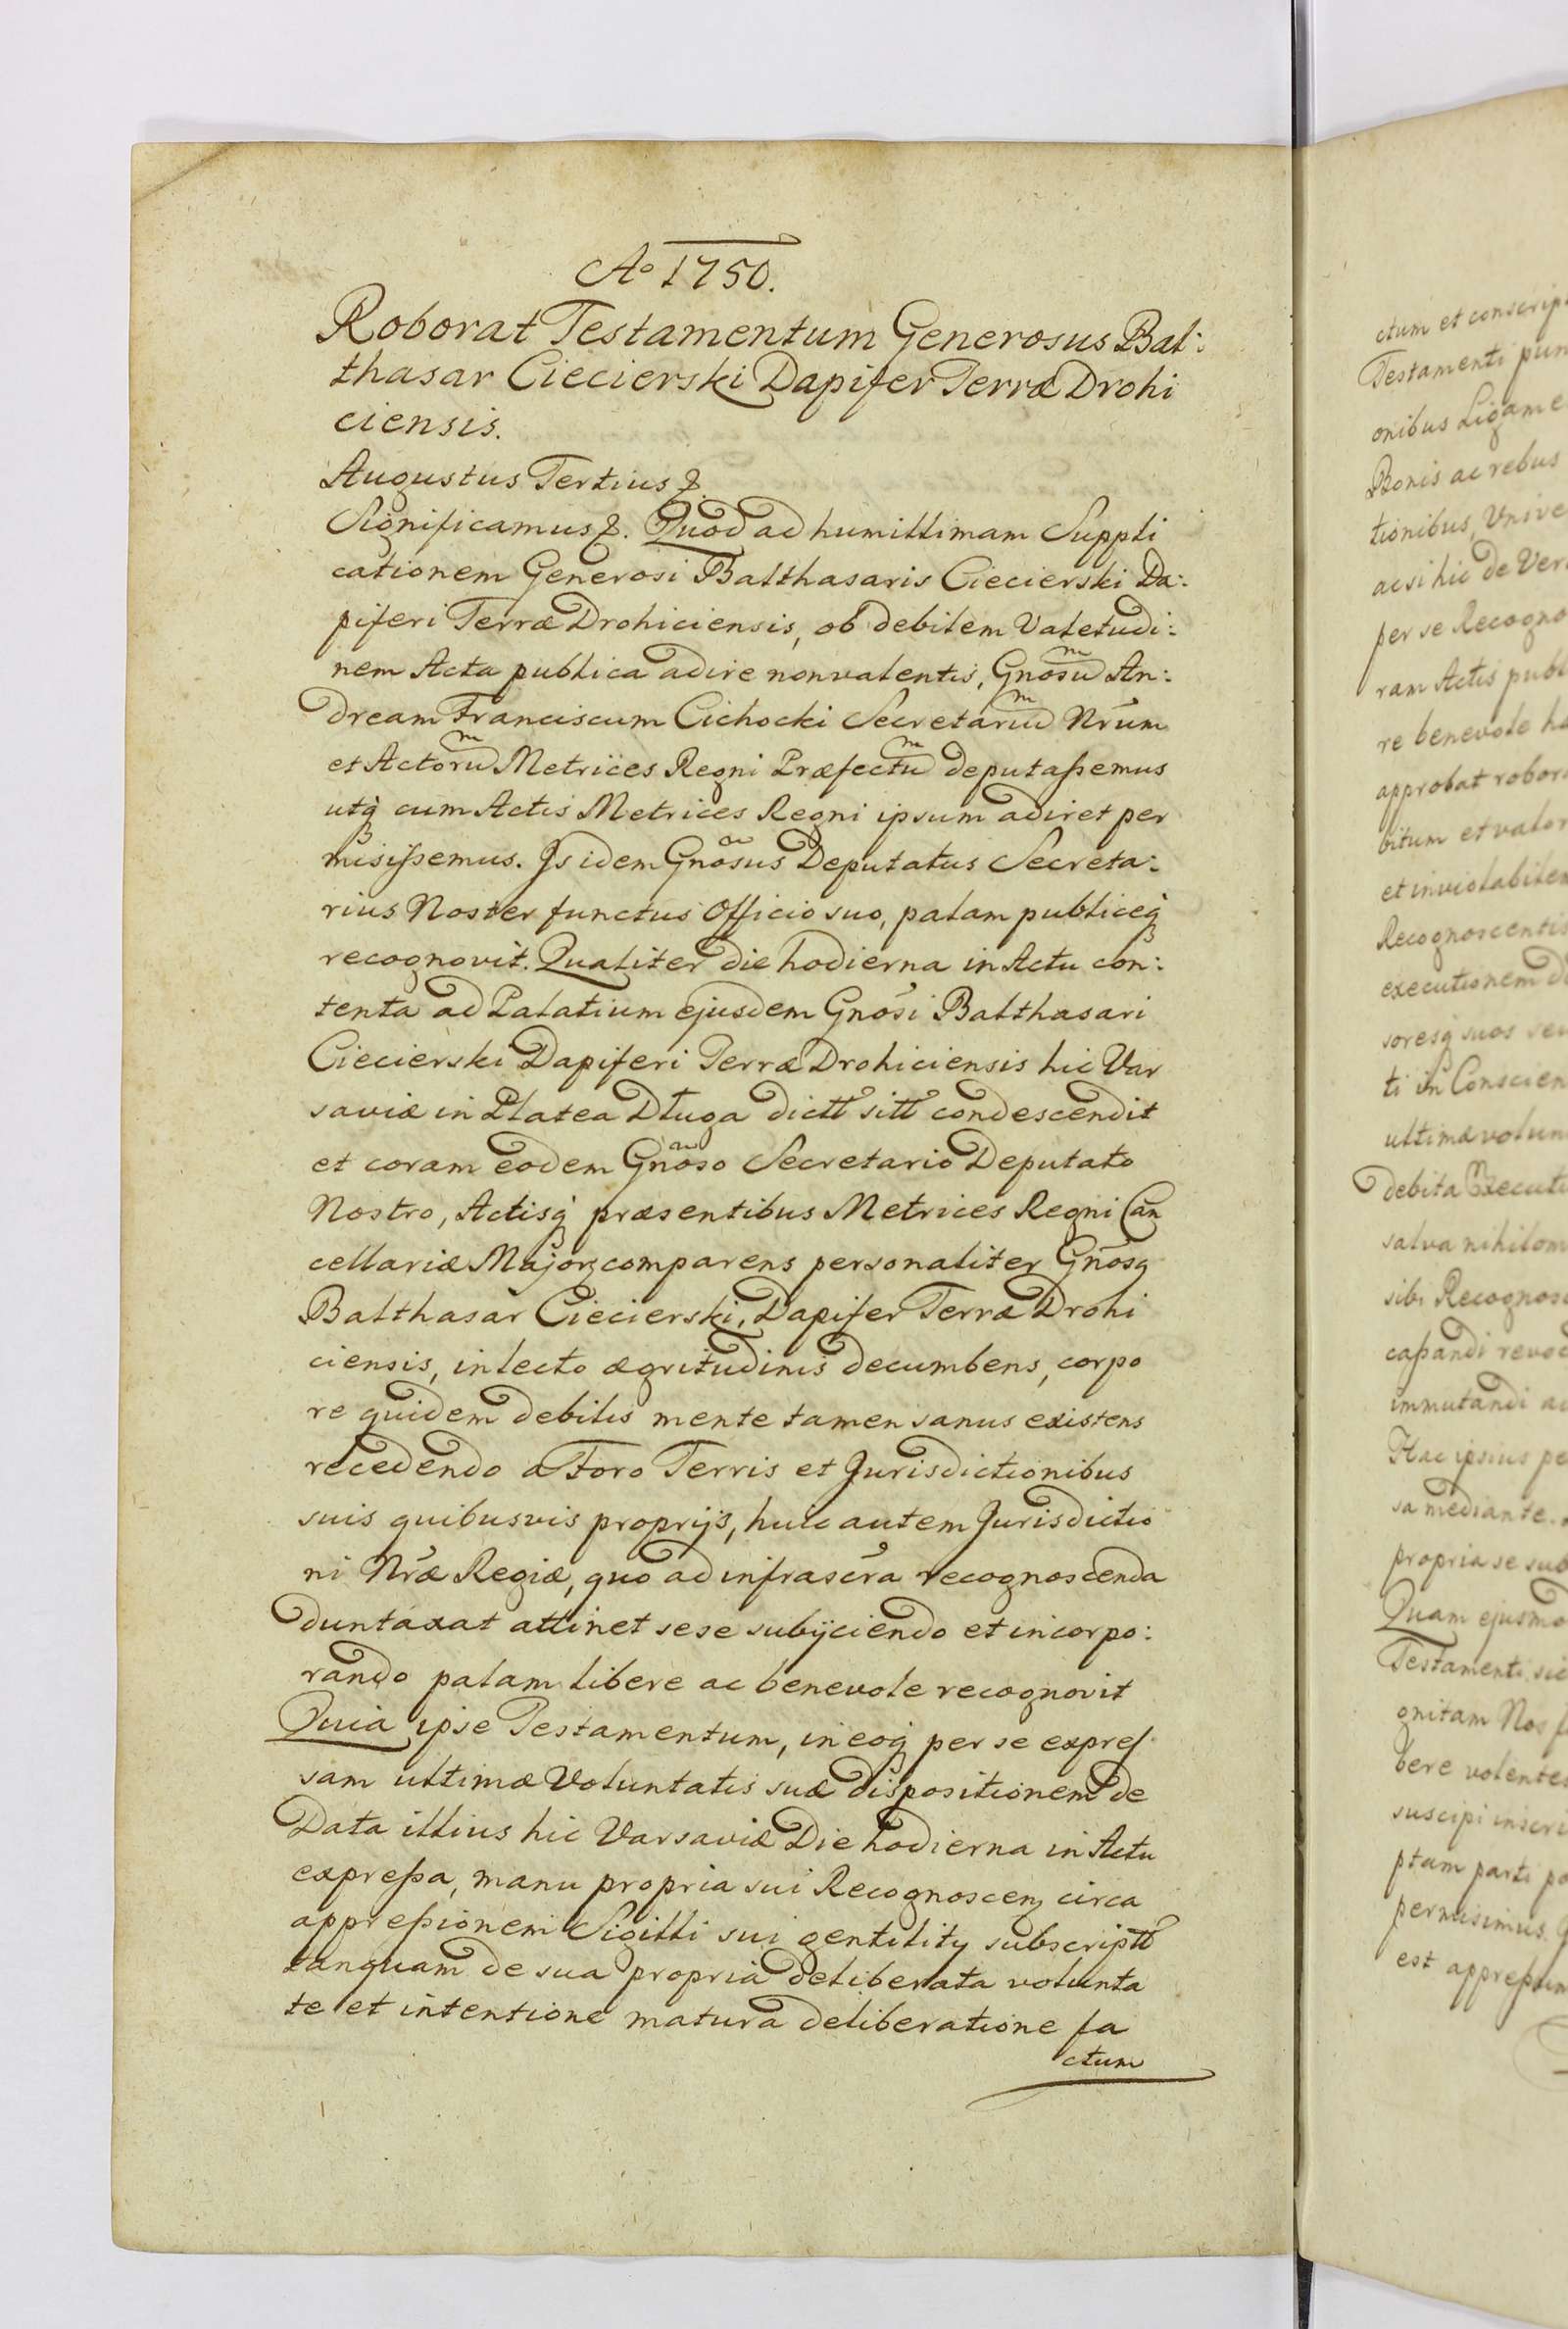 Aō 1750.
Roborat Testamentum Generosus Bal:
thasar Ciecierski Dapifer Terræ Drohi
ciensis.
Augustus Tertius &.
Significamus &. Quod ad humillimam Suppli
cationem Generosi Balthasaris Ciecierski Da:
piferi Terræ Drohiciensis, ob debilem Valetudi:
nem Acta publica adire nonvalentis, Gnosuͫ An:
dream Franciscum Cichocki Secretariuͫ Nrūm
et Actoruͫ Metrices Regni Præfectuͫ deputaßemus
utq́ cum Actis Metrices Regni ipsum adiret per
misißemus. Is idem Gnōsus Deputatus Secreta:
rius Noster functus Officio suo, palam publiceq́
recognovit. Qualiter die hodierna in Actu con:
tenta ad Palatium ejusdem Gnōsi Balthasari
Ciecierski Dapiferi Terræ Drohiciensis hic Var
saviæ in Platea Długa dictt sitt condescendit
et coram eodem Gnōso Secretario Deputato
Nostro, Actisq́ præsentibus Metrices Regni Can
cellariæ Majorꝫ comparens personaliter Gnōsꝫ
Balthasar Ciecierski, Dapifer Terræ Drohi
ciensis, in lecto ægritudinis decumbens, corpo
re quidem debilis mente tamen sanus existens
recedendo a Foro Terris et Jurisdictionibus
suis quibusvis proprijs, huic autem Jurisdictio
ni Nrǽ Regiæ, quo ad infrascrā recognoscenda
duntaxat attinet sese subijciendo et incorpo:
rando palam libere ac benevole recognovit
Quia ipse Testamentum, in eoq́ per se expres
sam ultimæ Voluntatis suæ dispositionem de
Data illius hic Varsaviæ Die hodierna in Actu
expreßa, manu propria sui Recognoscenꝫ circa
appreßionem Sigilli sui gentilitꝫ subscriptt
tanquam de sua propria deliberata volunta
te et intentione matura deliberatione fa
ctum
ctum et conscrip
Testamenti pun
onibus Ligame
Bonis ac rebus
tionibus, Unive
ac si hic de Ver
per se Recogno
ram Actis publ
re benevole ha
approbat robor
bitum et valor
et inviolabilem
Recognoscentis
executionem d
soresq́ suos seu
ti in Conscien
ultimæ volun
debita Executi
salva nihilom
sibi Recognos
caßandi revoc
immutandi ac
Hac ipsius pe
sa mediante.
propria se sub
Quam ejusmo
Testamenti sic
gnitam Nos
bere volentes
suscipi inscri
ptam parti po
permisimus.
est appreßum